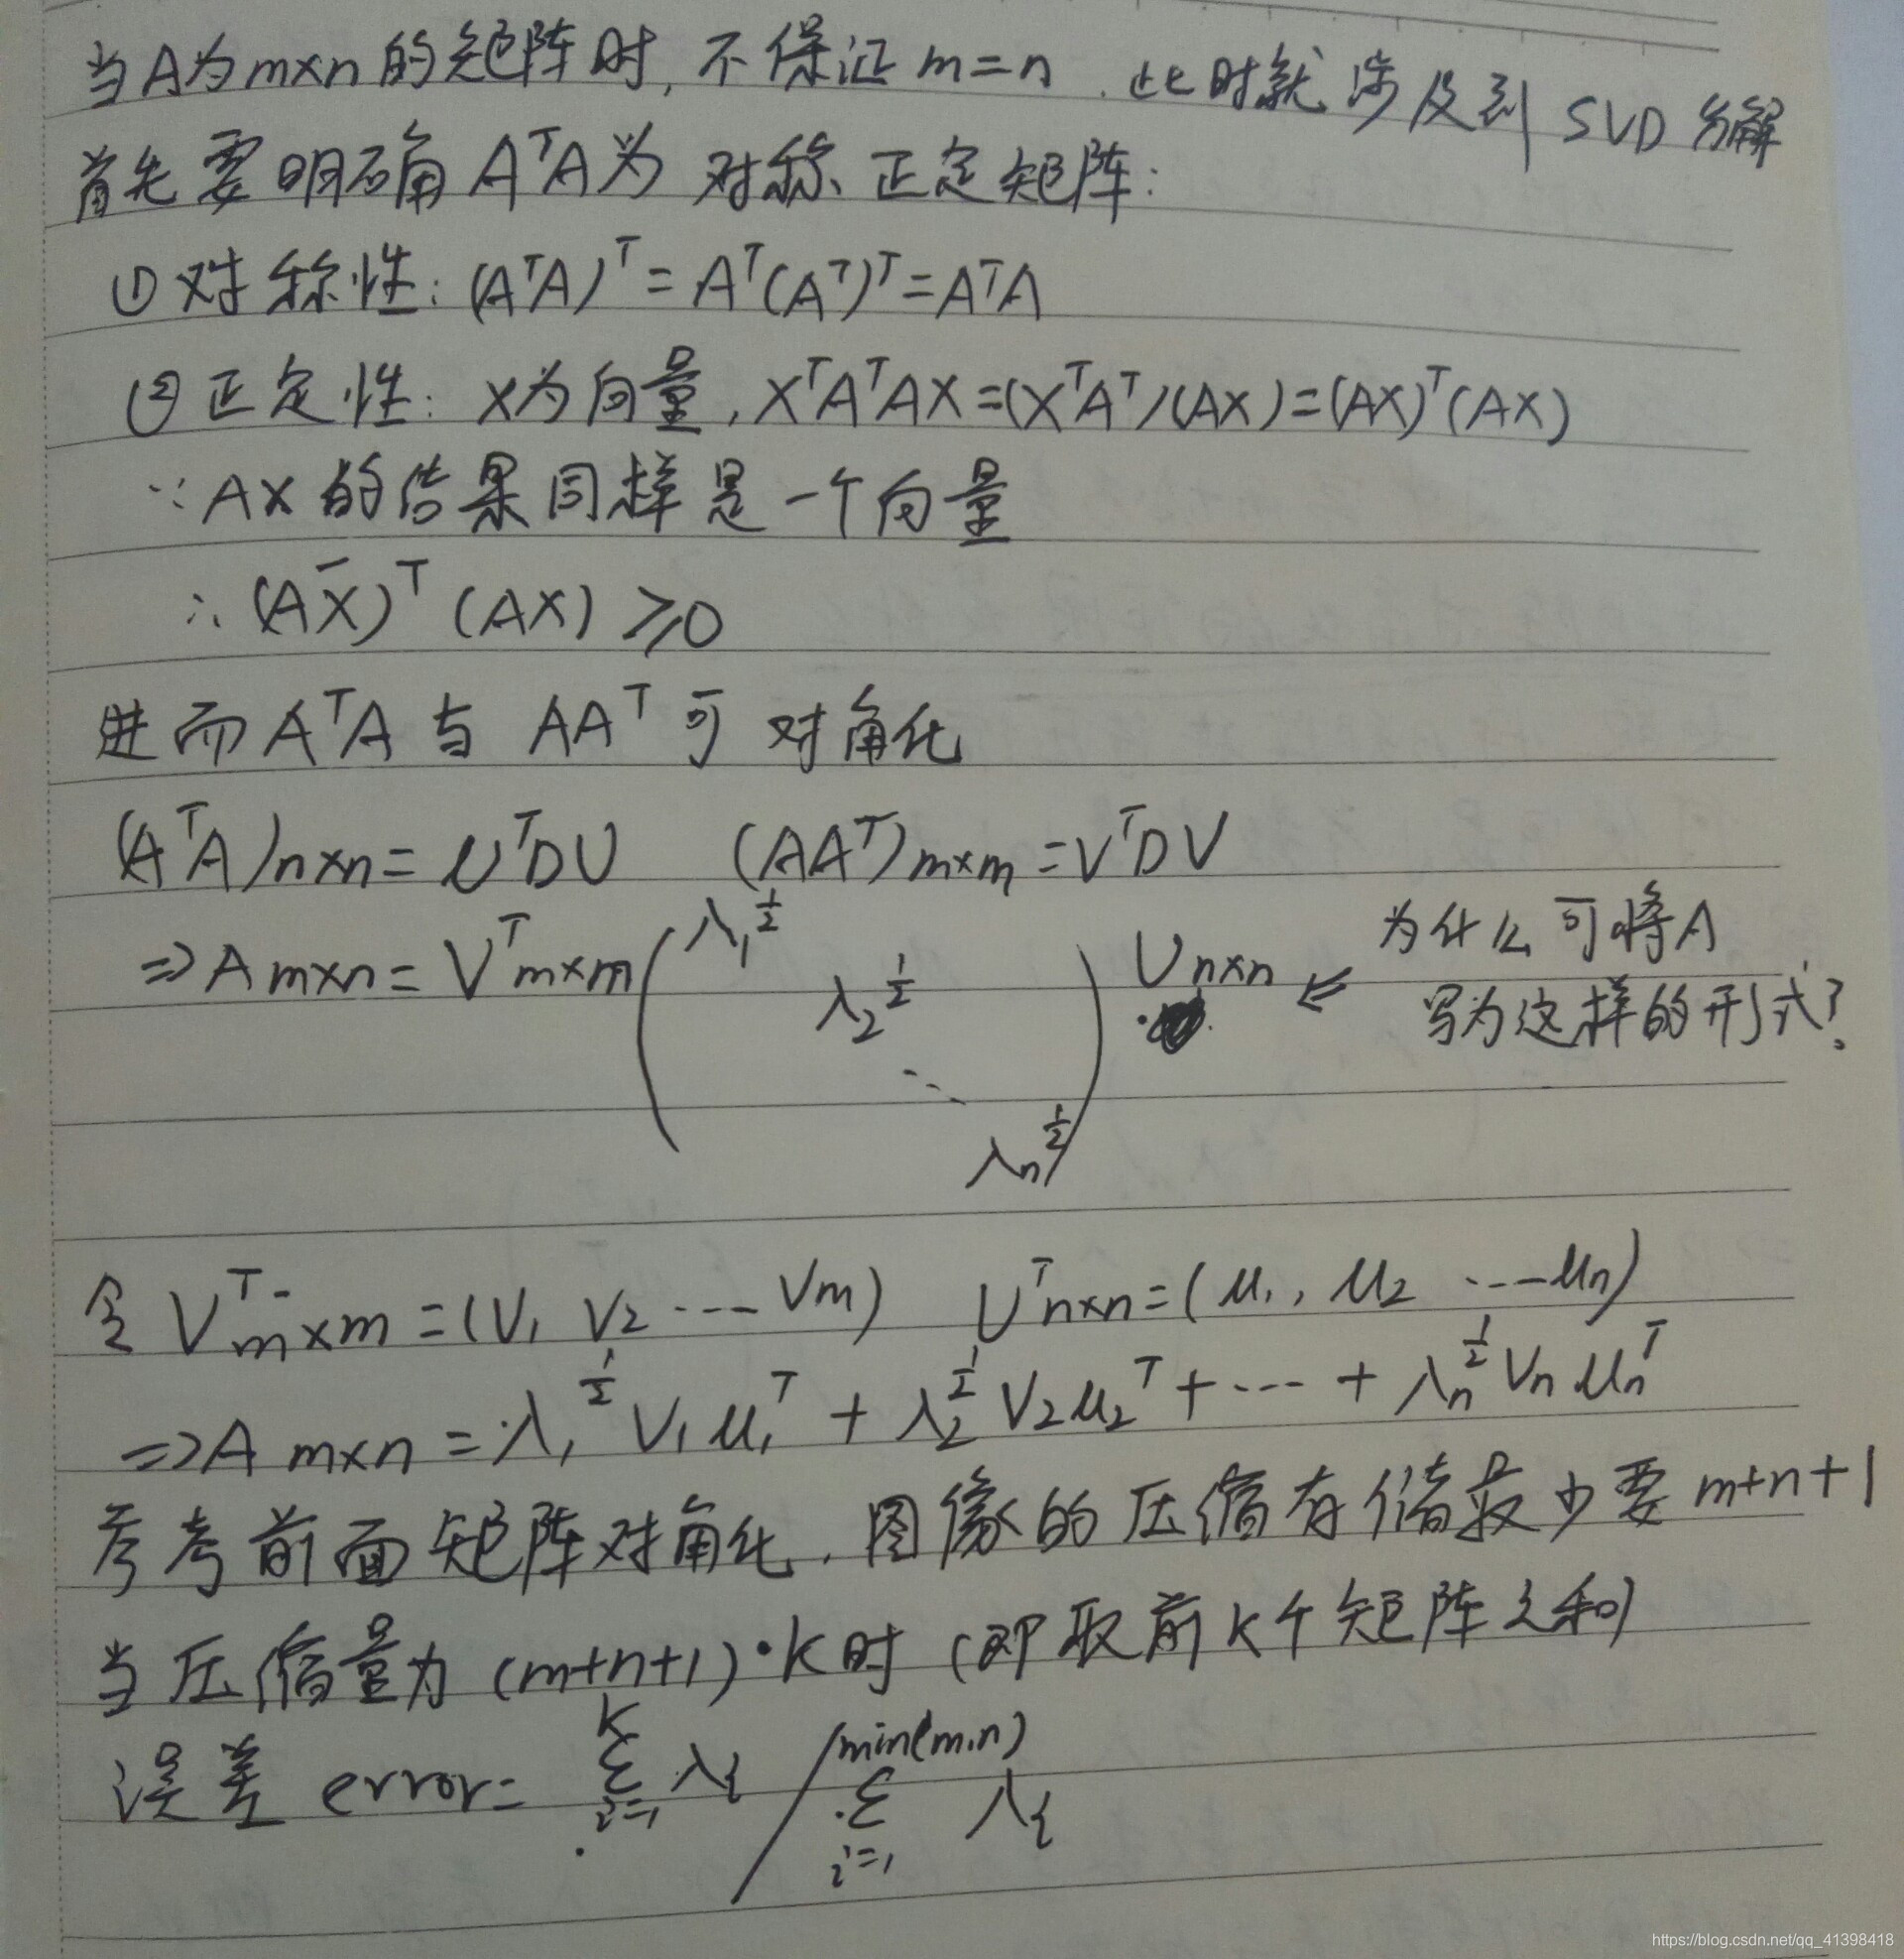 当A为m×n的矩阵时,不保证m=n.此时就涉及到SVD分解
首先要明确AᵀA为对称、正定矩阵:
①对称性:(AᵀA)ᵀ=Aᵀ(Aᵀ)ᵀ=AᵀA
②正定性:X为向量,XᵀAᵀAX=(XᵀAᵀ)(AX)=(AX)ᵀ(AX)
∵AX的结果同样是一个向量
∴(AX)ᵀ(AX)≥0
进而AᵀA与AAᵀ可对角化
(AᵀA)n×n=UᵀDU (AAᵀ)m×m=VᵀDV
⇒Am×n=Vᵀm×m(λ₁^½ λ₂^½ ⋱ λn^½)Un×n ⇐ 为什么可将A
写为这样的形式?
令Vᵀm×m=(V₁ V₂ ... Vm) Uᵀn×n=(μ₁, μ₂ ... μn)
⇒Am×n=λ₁^½V₁μ₁ᵀ+λ₂^½V₂μ₂ᵀ+...+λn^½Vnμnᵀ
参考前面矩阵对角化.图像的压缩存储最少要m+n+1
当压缩量为(m+n+1)·k时(即取前k个矩阵之和)
误差error=Σ(i=1→k)λi/Σ(i=1→min(m,n))λi
https://blog.csdn.net/qq_41398418